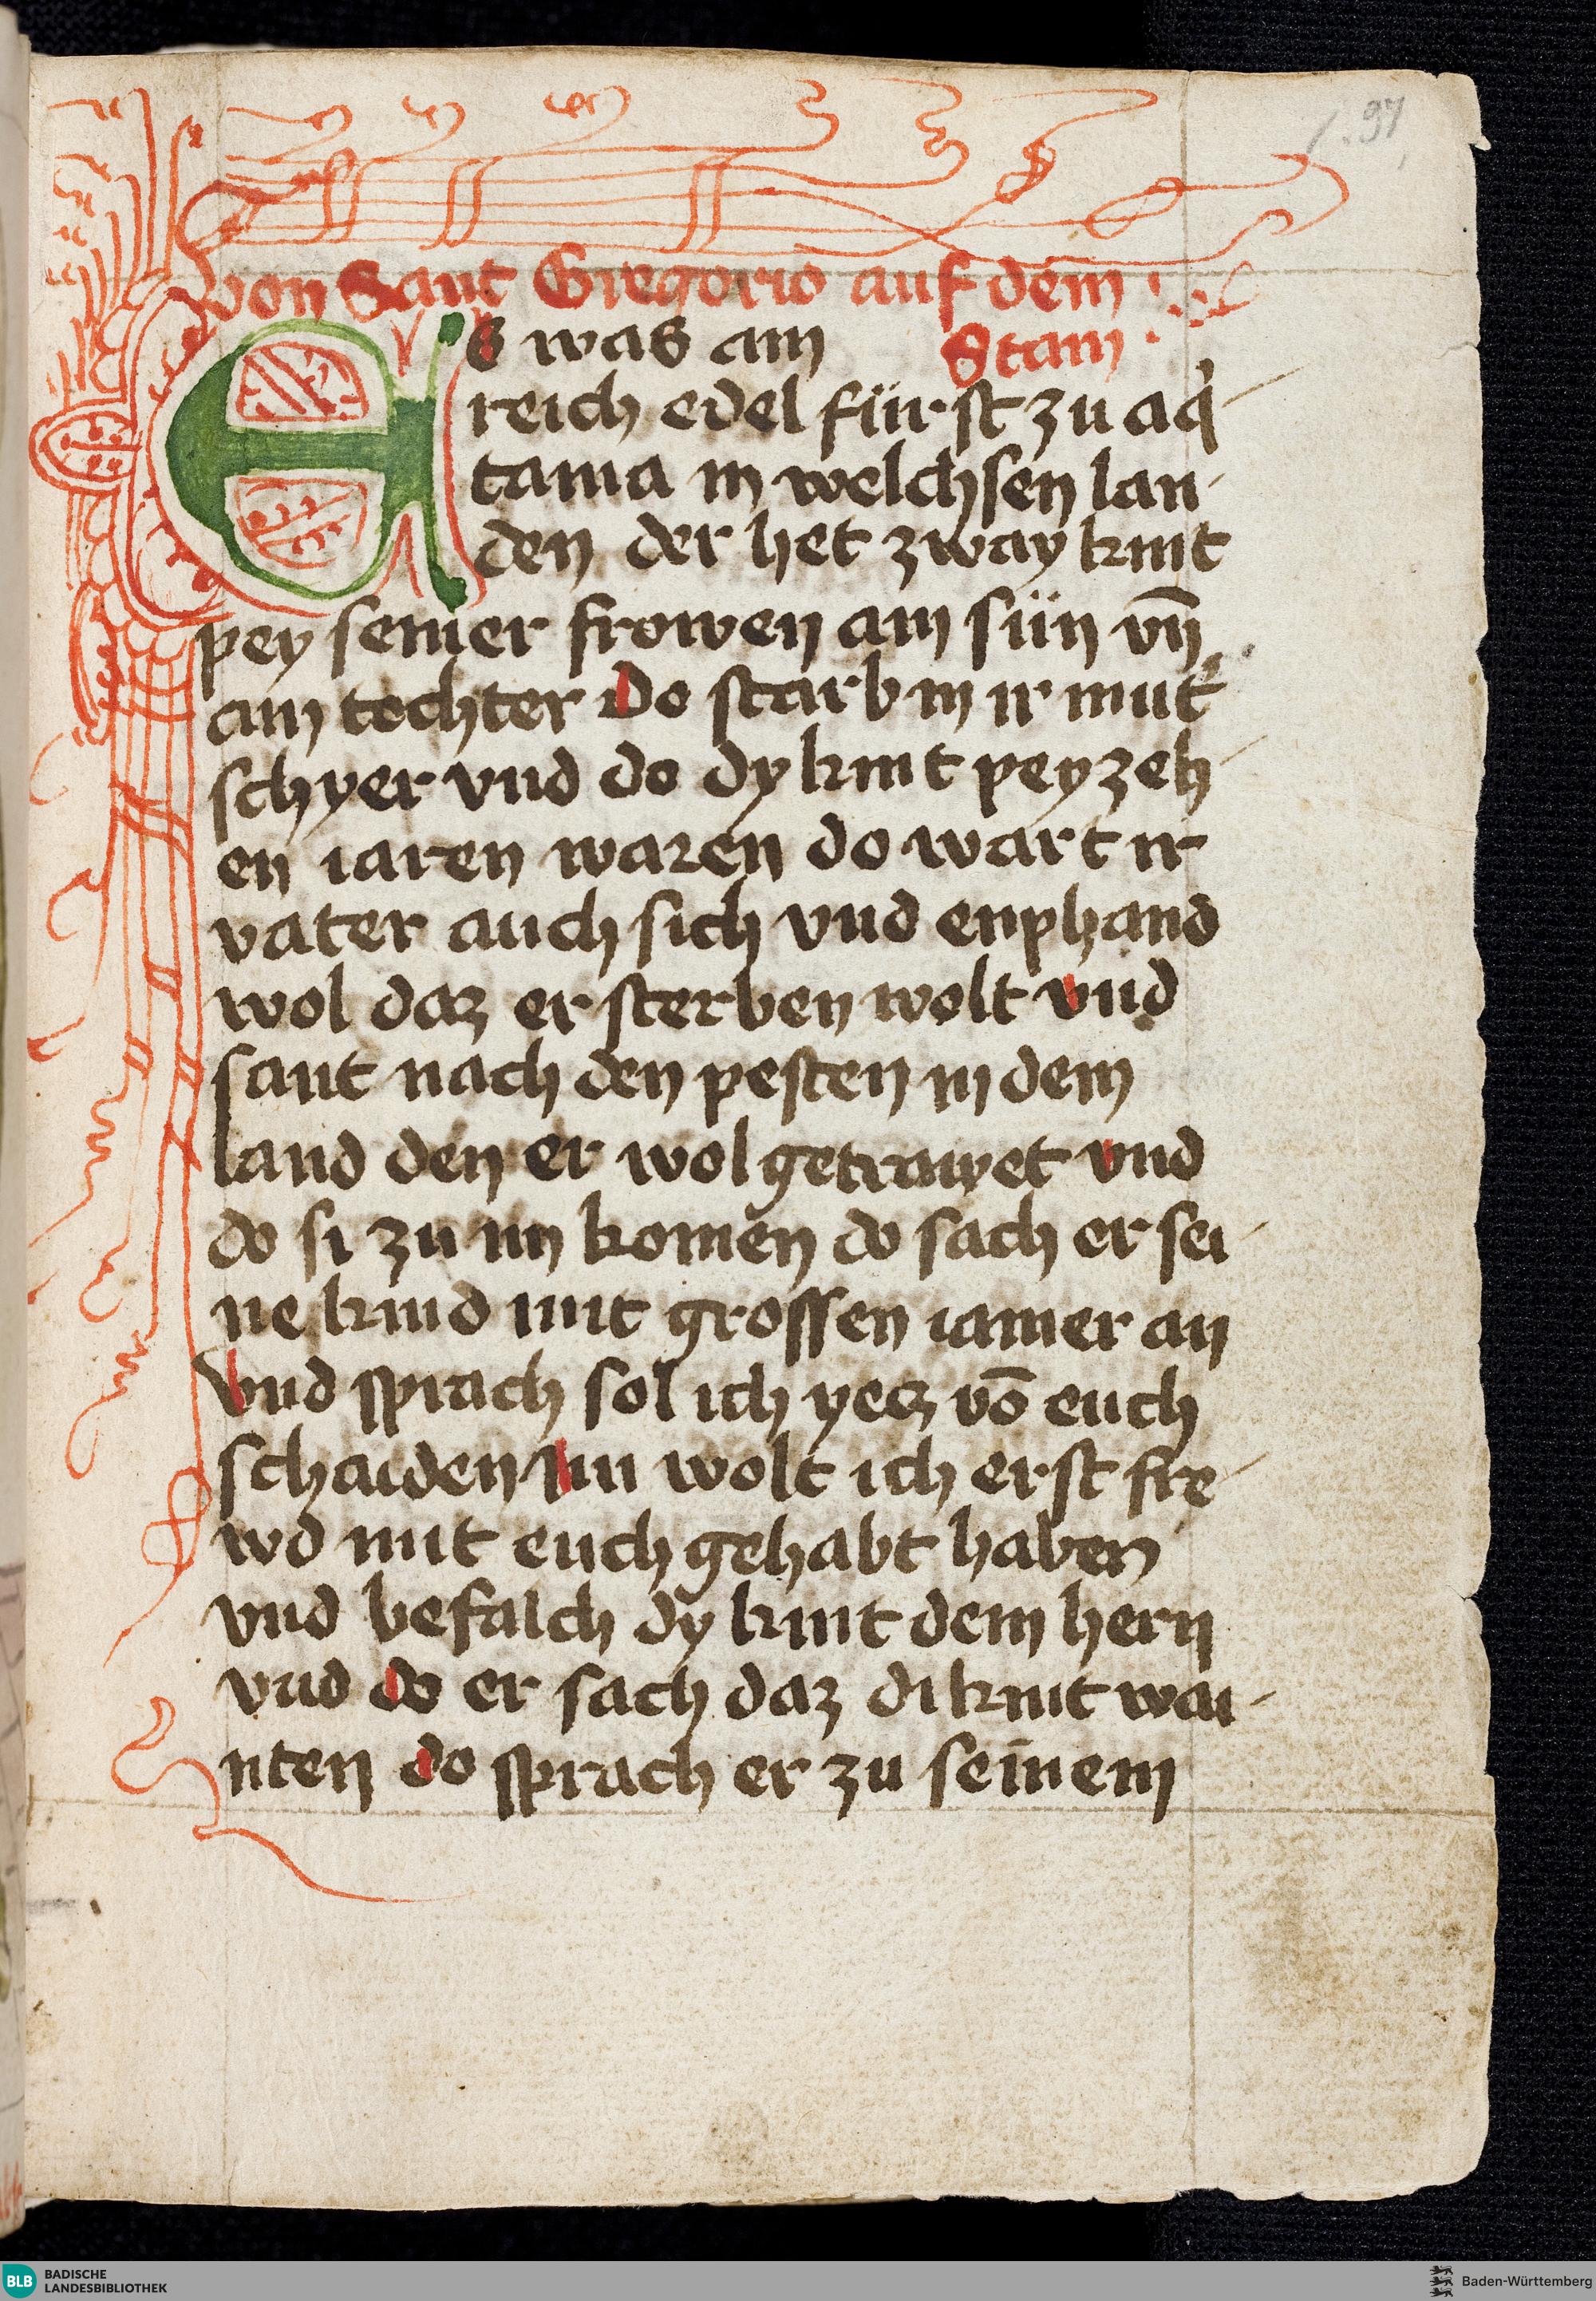 1.97
von Sant Gregorio auf dem
Stain
Es was ain
reich edel fürst zu aq̓
tania in welchsen lan-
den der het zway kint
pey seiner frowen ain sün vn̄
ain tochter Do starb in ir mut̓
schyer vnd do dy kint pey zeh-
en iaren waren do wart ir
vater auch sich vnd enphand
wol daz er sterben wolt vnd
sant nach den pesten in dem
land den er wol getrawet vnd
do si zu im komen do sach er sei-
ne kind mit grossen iamer an
Vnd sprach sol ich yecz vō euch
schaiden Nu wolt ich erst fre-
wd mit euch gehabt haben
vnd befalch dy kint dem hern
vnd do er sach daz di kint wai-
nten do sprach er zu seinem
BLB BADISCHE
LANDESBIBLIOTHEK
Baden-Württemberg